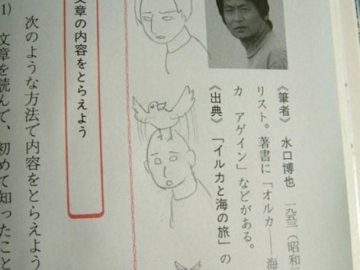 《筆者》 水口博也 一九五三(昭和
リスト。著書に「オルカ――海
カ アゲイン」などがある。
《出典》「イルカと海の旅」の
文章の内容をとらえよう
次のような方法で内容をとらえよう
1) 文章を読んで、初めて知ったこと